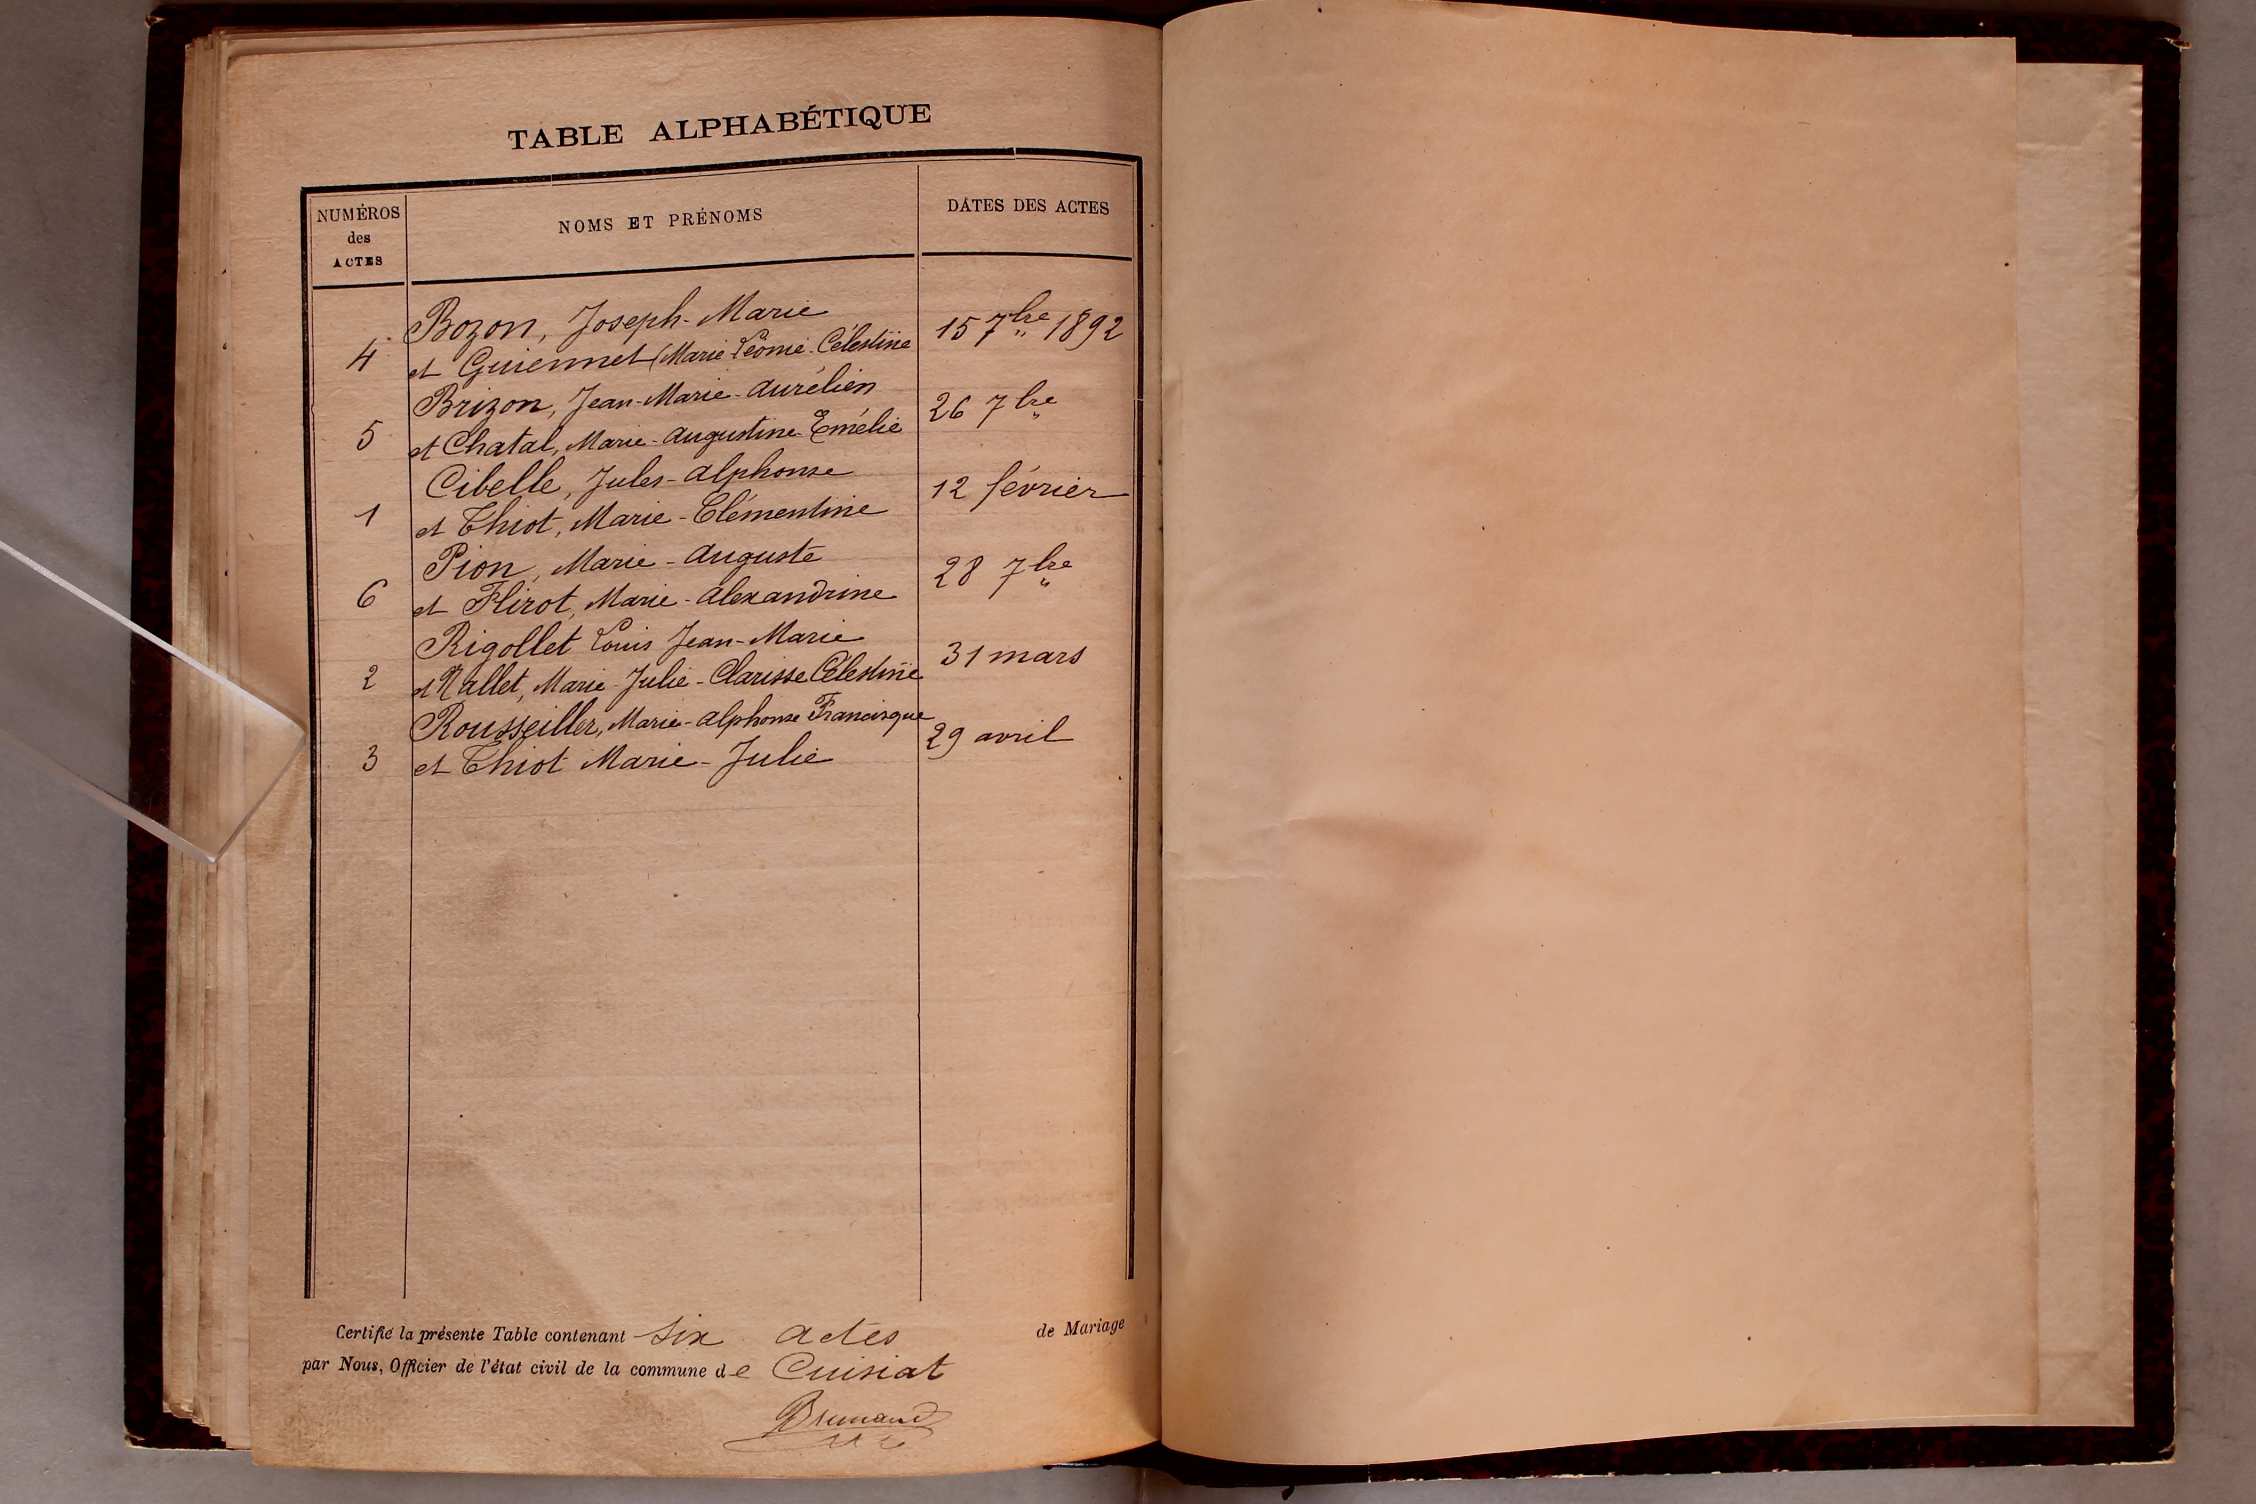 TABLE ALPHABÉTIQUE
NUMÉROS des ACTES
NOMS ET PRÉNOMS
DATES DES ACTES
Bozon, Joseph-Marie
4 et Guiennet (Marie Léonie-Célestine 15 7bre 1892
Brizon, Jean-Marie-Aurélien
5 et Chatal, Marie-Augustine-Emélie 26 7bre
Cibelle, Jules-Alphonse
1 et Thiot, Marie-Clémentine 12 février
Pion, Marie-Auguste
6 et Flirot, Marie-Alexandrine 28 7bre
Rigollet Louis Jean-Marie
2 et Mallet, Marie-Julie-Clarisse Célestine 31 mars
Rousseiller, Marie-Alphonse Francisque
3 et Thiot Marie-Julie 29 avril
Certifié la présente Table contenant six actes de Mariage
par Nous, Officier de l'état civil de la commune de Cuisiat